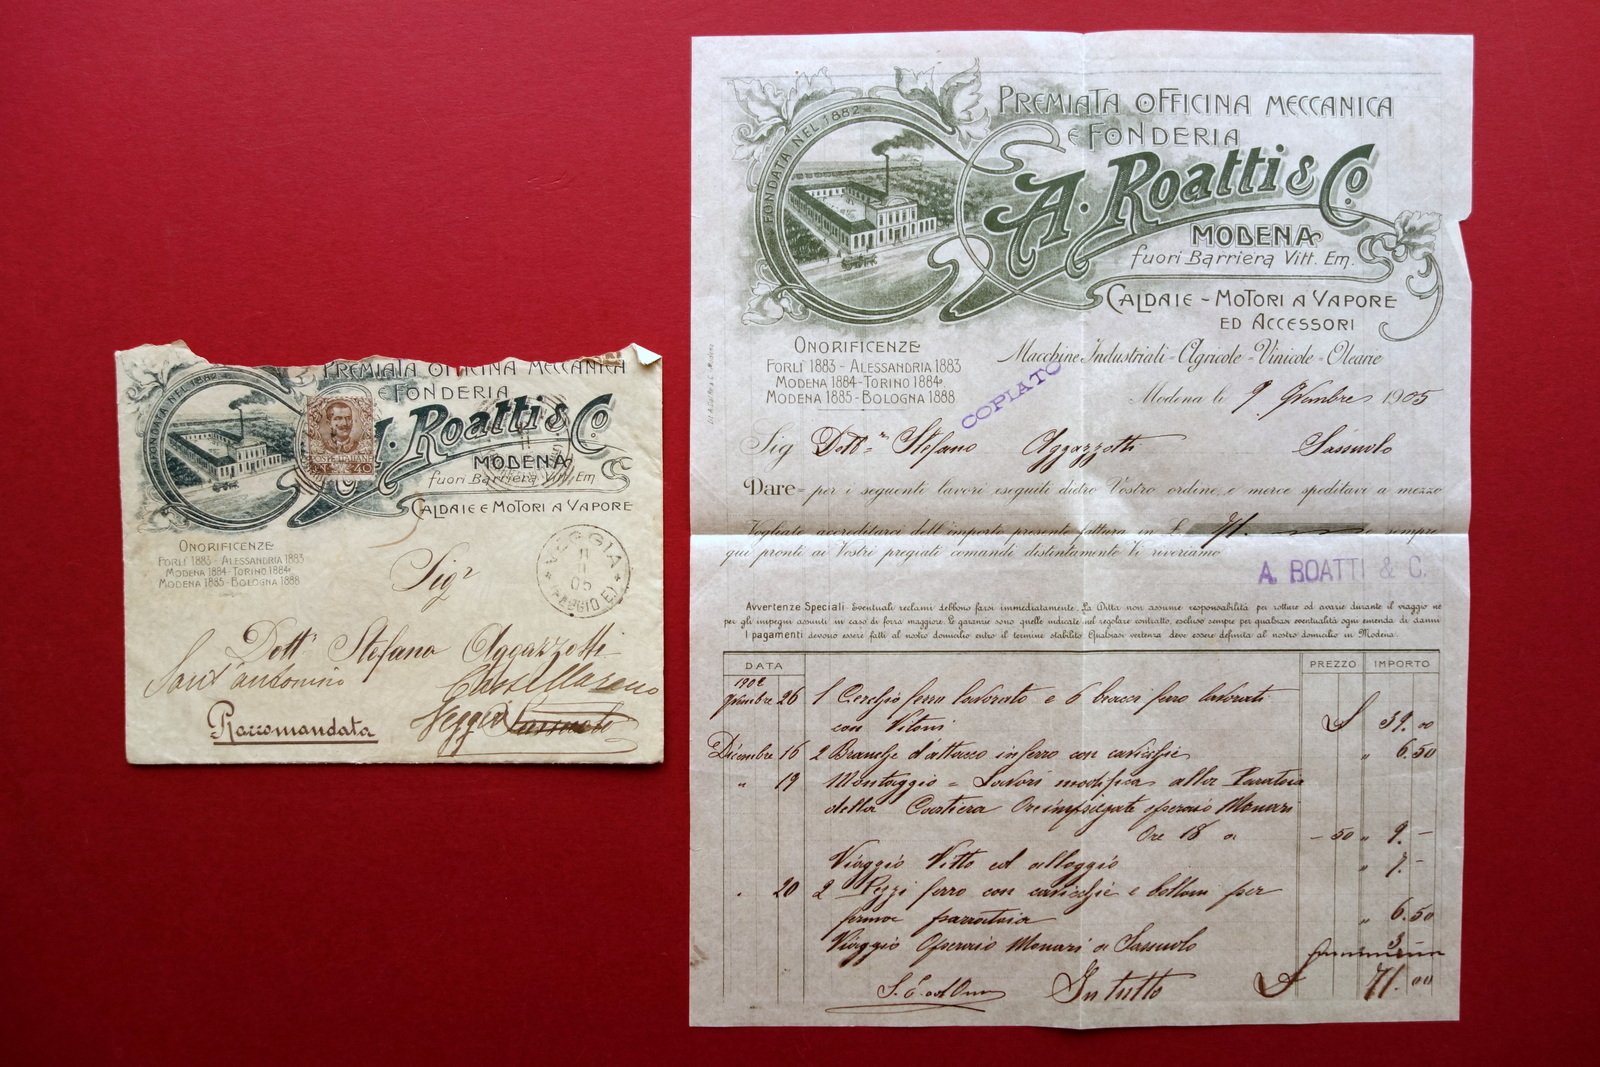 PREMIATA OFFICINA MECCANICA
E FONDERIA
FONDATA NEL 1882
A. Roatti & Co
MODENA
fuori Barriera Vitt. Em.
CALDAIE E MOTORI A VAPORE
40
ONORIFICENZE
FORLÌ 1883 - ALESSANDRIA 1883
MODENA 1884 - TORINO 1884
MODENA 1885 - BOLOGNA 1888
VEGGIA
11
05
Sigr
Dott. Stefano Aggazzotti
Sant'antonino Castellarano
Raccomandata
Veggia Sassuolo
PREMIATA OFFICINA MECCANICA
E FONDERIA
FONDATA NEL 1882
A. Roatti & Co.
MODENA
fuori Barriera Vitt. Em.
CALDAIE - MOTORI A VAPORE
ED ACCESSORI
Macchine Industriali - Agricole - Vinicole - Olearie
ONORIFICENZE
FORLÌ 1883 - ALESSANDRIA 1883
MODENA 1884 - TORINO 1884
MODENA 1885 - BOLOGNA 1888
COPIATO
Modena li 9 9vembre 1905
Sig Dott. Stefano Aggazzotti Sassuolo
Dare = per i seguenti lavori eseguiti dietro Vostro ordine, e merce speditavi a mezzo
Vogliate accreditarci dell'importo presente fattura in £ 71. e sempre
qui pronti ai Vostri pregiati comandi distintamente Vi riveriamo
A. BOATTI & C.
Avvertenze Speciali - Eventuali reclami debbono farsi immediatamente. La Ditta non assume responsabilità per rotture ed avarie durante il viaggio ne
per gli impegni assunti in caso di forza maggiore. Le garanzie sono quelle indicate nel regolare contratto, escluso sempre per qualsiasi eventualità ogni emenda di danni
I pagamenti devono essere fatti al nostro domicilio entro il termine stabilito. Qualsiasi vertenza deve essere definita al nostro domicilio in Modena.
DATA PREZZO IMPORTO
1902
9vembre 26 1 Cerchio ferro lavorato e 6 bracci ferro lavorati
con Vitoni £ 39.00
Décembre 16 2 Branche d'attacco in ferro con cavicchie " 6.50
" 19 Montaggio = Lavori modifica alla Paratoia
della Cartiera Ore impiegate operaio Monari
Ore 18 a - 50 " 9. -
Viaggio Vitto ed alloggio " 7. -
" 20 2 Pezzi ferro con cavicchie e bolloni per
paratoia " 6.50
Viaggio Operaio Monari a Sassuolo 3
S. E. ed Om. In tutto £ 71.00